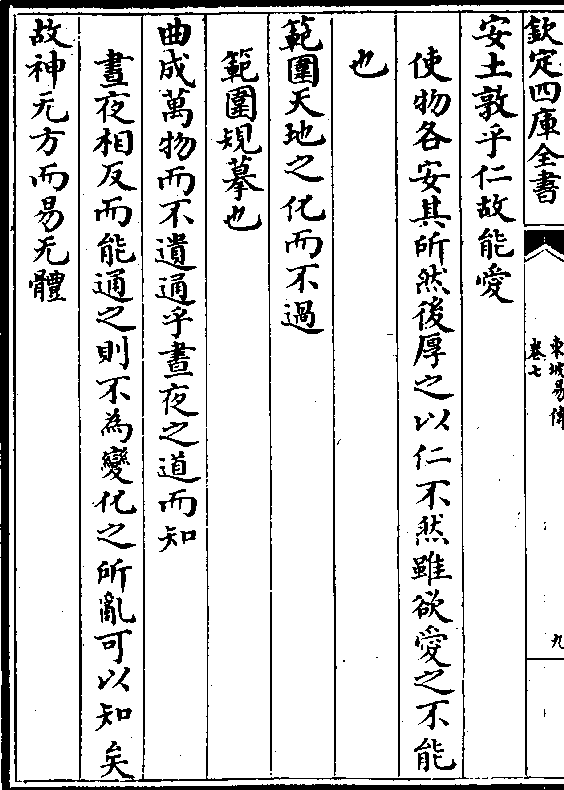 欽定四庫全書
東坡易傳
卷七
九
安土敦乎仁故能愛
使物各安其所然後厚之以仁不然雖欲愛之不能
也
範圍天地之化而不過
範圍規摹也
曲成萬物而不遺通乎晝夜之道而知
晝夜相反而能通之則不為變化之所亂可以知矣
故神无方而易无體